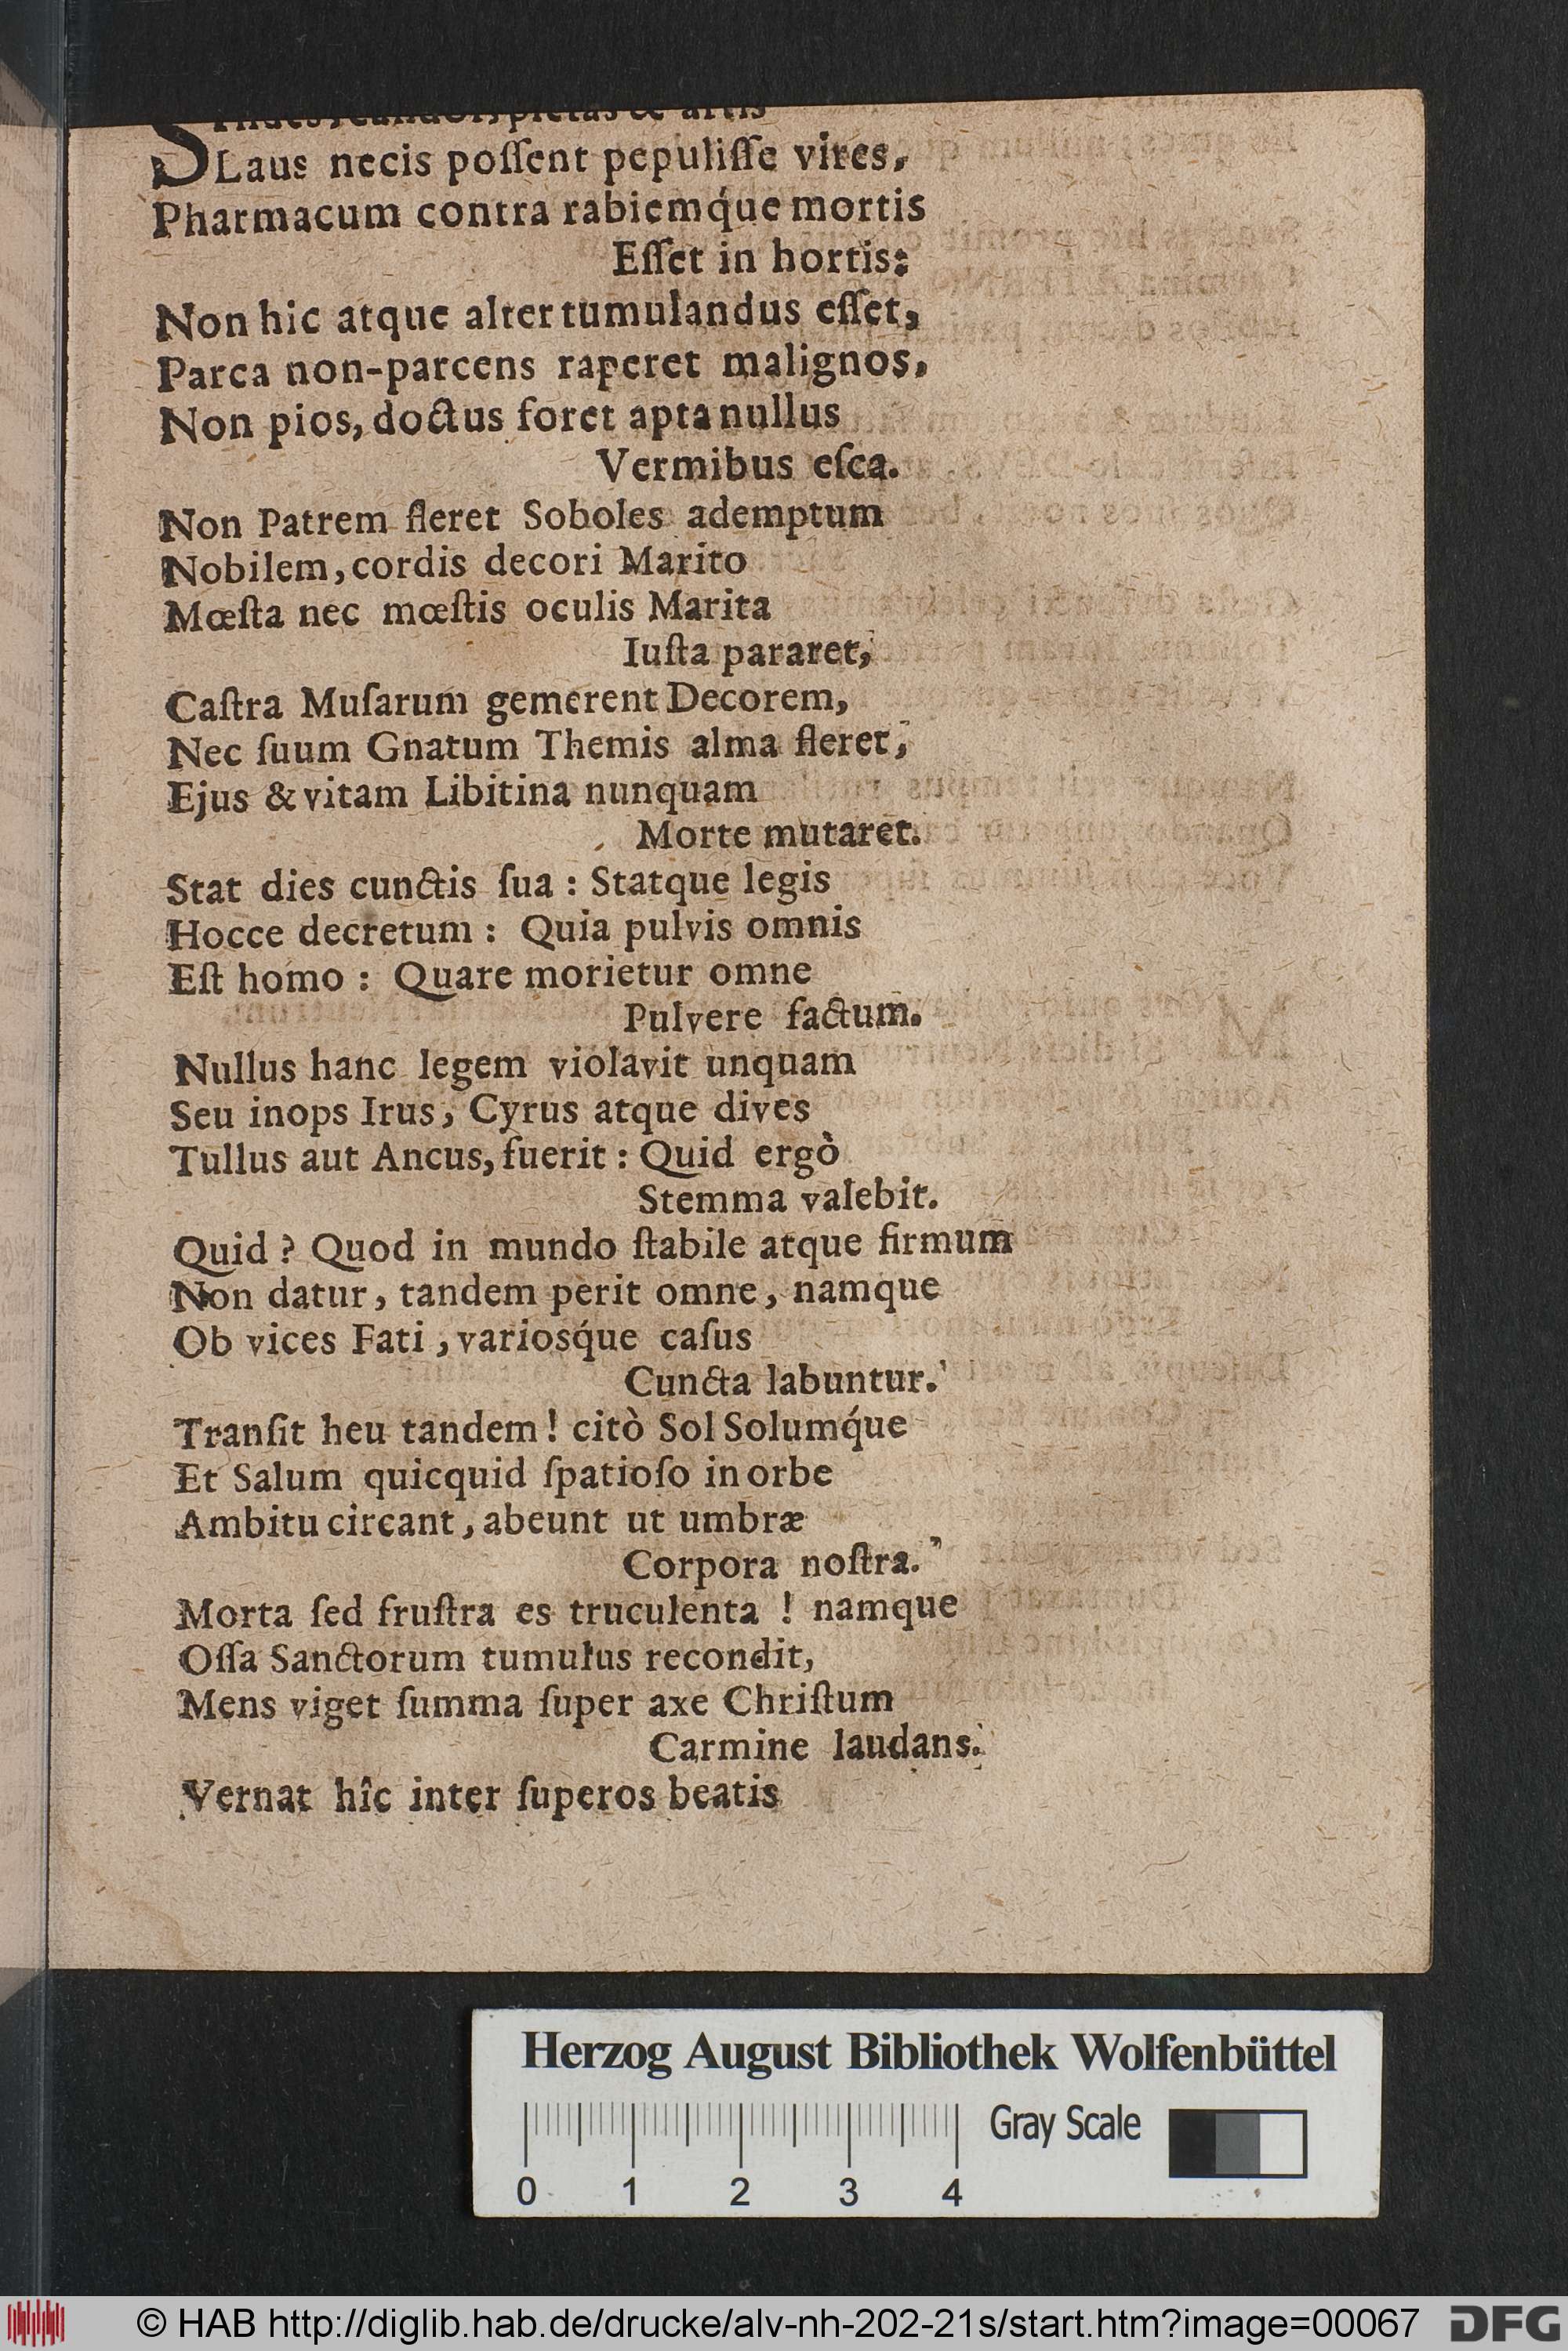 SI fides, candor, pietas & artis
Laus necis poſſent pepuliſſe vires,
Pharmacum contra rabiemq́ue mortis
Eſſet in hortis:
Non hic atque alter tumulandus eſſet,
Parca non-parcens raperet malignos,
Non pios, doctus foret apta nullus
Vermibus eſca.
Non Patrem fleret Soboles ademptum
Nobilem, cordis decori Marito
Mœſta nec mœſtis oculis Marita
Iuſta pararet,
Caſtra Muſarum gemerent Decorem,
Nec ſuum Gnatum Themis alma fleret,
Ejus & vitam Libitina nunquam
Morte mutaret.
Stat dies cunctis ſua : Statque legis
Hocce decretum : Quia pulvis omnis
Eſt homo : Quare morietur omne
Pulvere factum.
Nullus hanc legem violavit unquam
Seu inops Irus, Cyrus atque dives
Tullus aut Ancus, fuerit : Quid ergò
Stemma valebit.
Quid ? Quod in mundo ſtabile atque firmum
Non datur, tandem perit omne, namque
Ob vices Fati, variosq́ue caſus
Cuncta labuntur.
Tranſit heu tandem ! citò Sol Solumq́ue
Et Salum quicquid ſpatioſo in orbe
Ambitu circant, abeunt ut umbræ
Corpora noſtra.
Morta ſed fruſtra es truculenta ! namque
Oſſa Sanctorum tumulus recondit,
Mens viget ſumma ſuper axe Chriſtum
Carmine laudans.
Vernat hîc inter ſuperos beatis
Herzog August Bibliothek Wolfenbüttel
Gray Scale
0 1 2 3 4
© HAB http://diglib.hab.de/drucke/alv-nh-202-21s/start.htm?image=00067
DFG